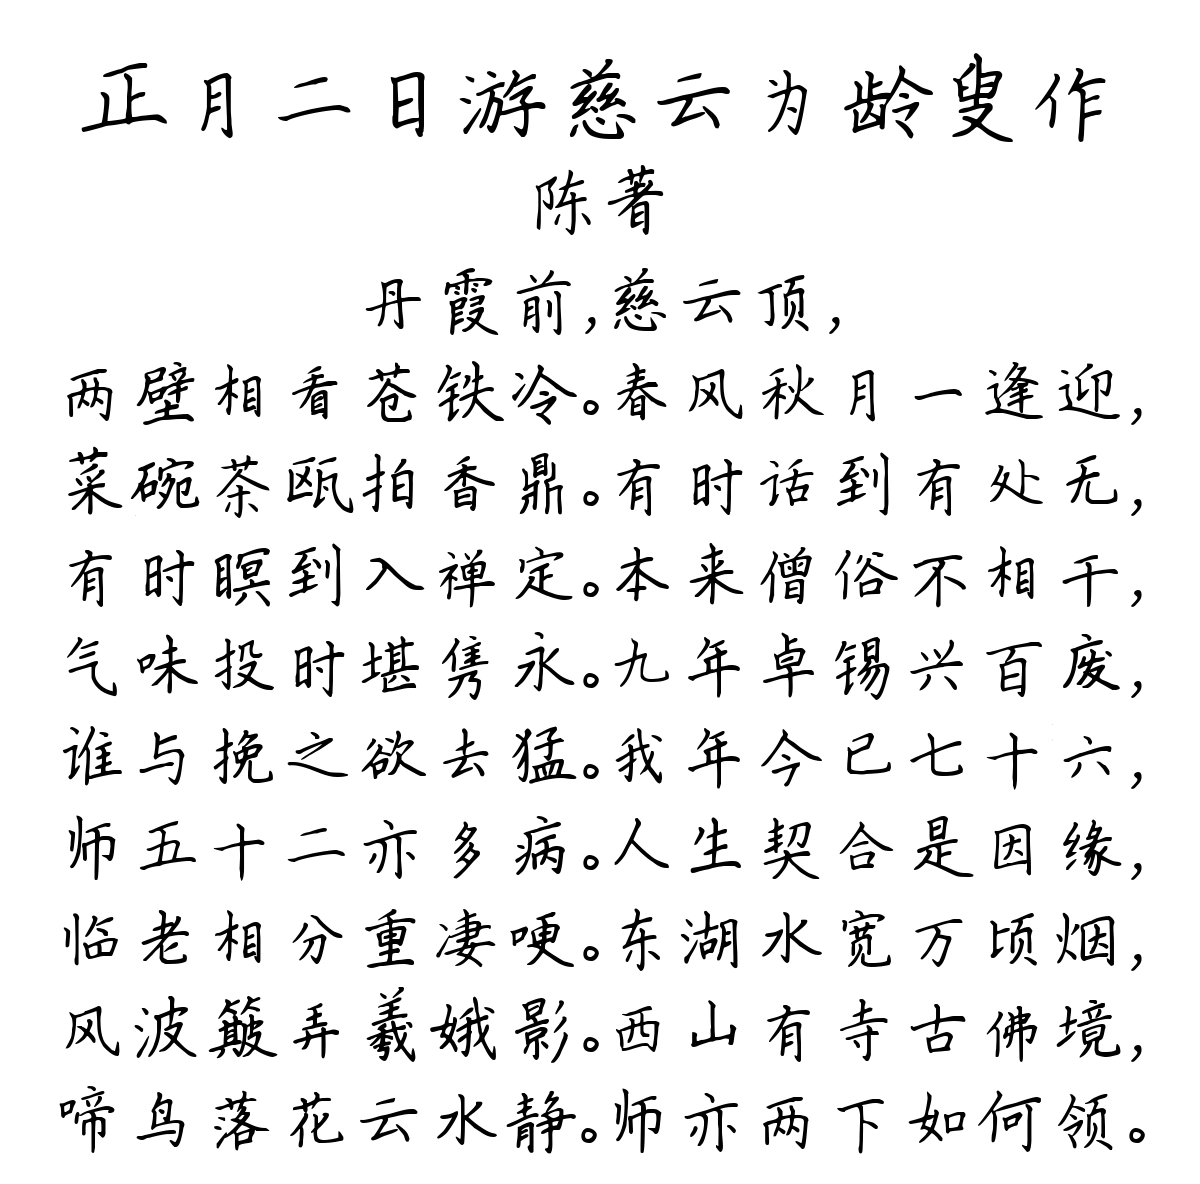 正月二日游慈云为龄叟作
陈著
丹霞前,慈云顶,
两壁相看苍铁冷。春风秋月一逢迎,
菜碗茶瓯拍香鼎。有时话到有处无,
有时瞑到入禅定。本来僧俗不相干,
气味投时堪隽永。九年卓锡兴百废,
谁与挽之欲去猛。我年今已七十六,
师五十二亦多病。人生契合是因缘,
临老相分重凄哽。东湖水宽万顷烟,
风波簸弄羲娥影。西山有寺古佛境,
啼鸟落花云水静。师亦两下如何领。